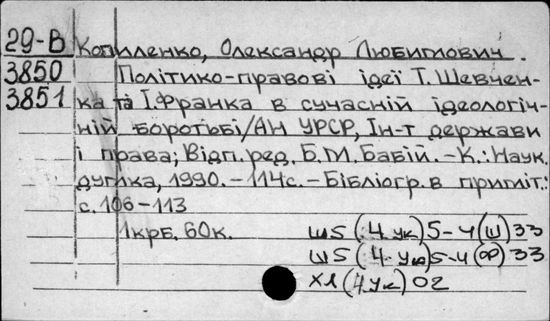 29-В Копиленко, Олександр Любимович.
3850 Політико-правові ідеї Т. Шевчен-
3851 ка та І. Франка в сучасній ідеологіч-
ній боротьбі/АН УРСР, Ін-т держави
і права; Відп. ред. Б.М. Бабій. -К.: Наук.
думка, 1990. - 114с. - Бібліогр. в приміт.:
с. 106-113
1крб. 60к.
Ш5(4.Ук)5-4(Ш)33
Ш5(4.Ук)5-4(Ф)33
ХЛ(4.Ук)02